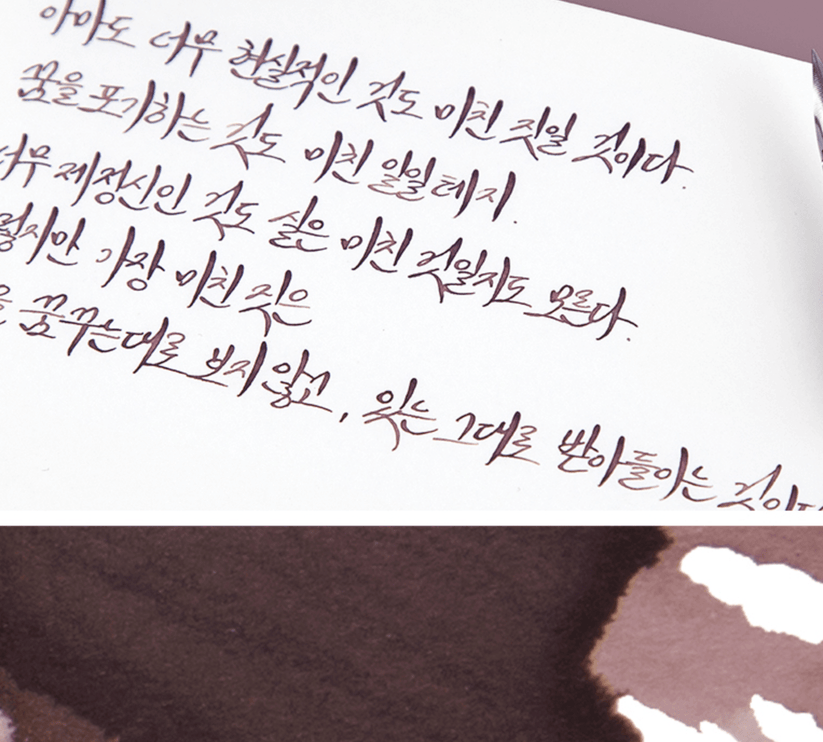 아마도 너무 현실적인 것도 미친 짓일 것이다.
꿈을 포기하는 것도 미친 일일테지.
너무 제정신인 것도 실은 미친 것일지도 모른다.
렇지만 가장 미친 짓은
을 꿈꾸는대로 보지 않고, 있는 그대로 받아들이는 것이